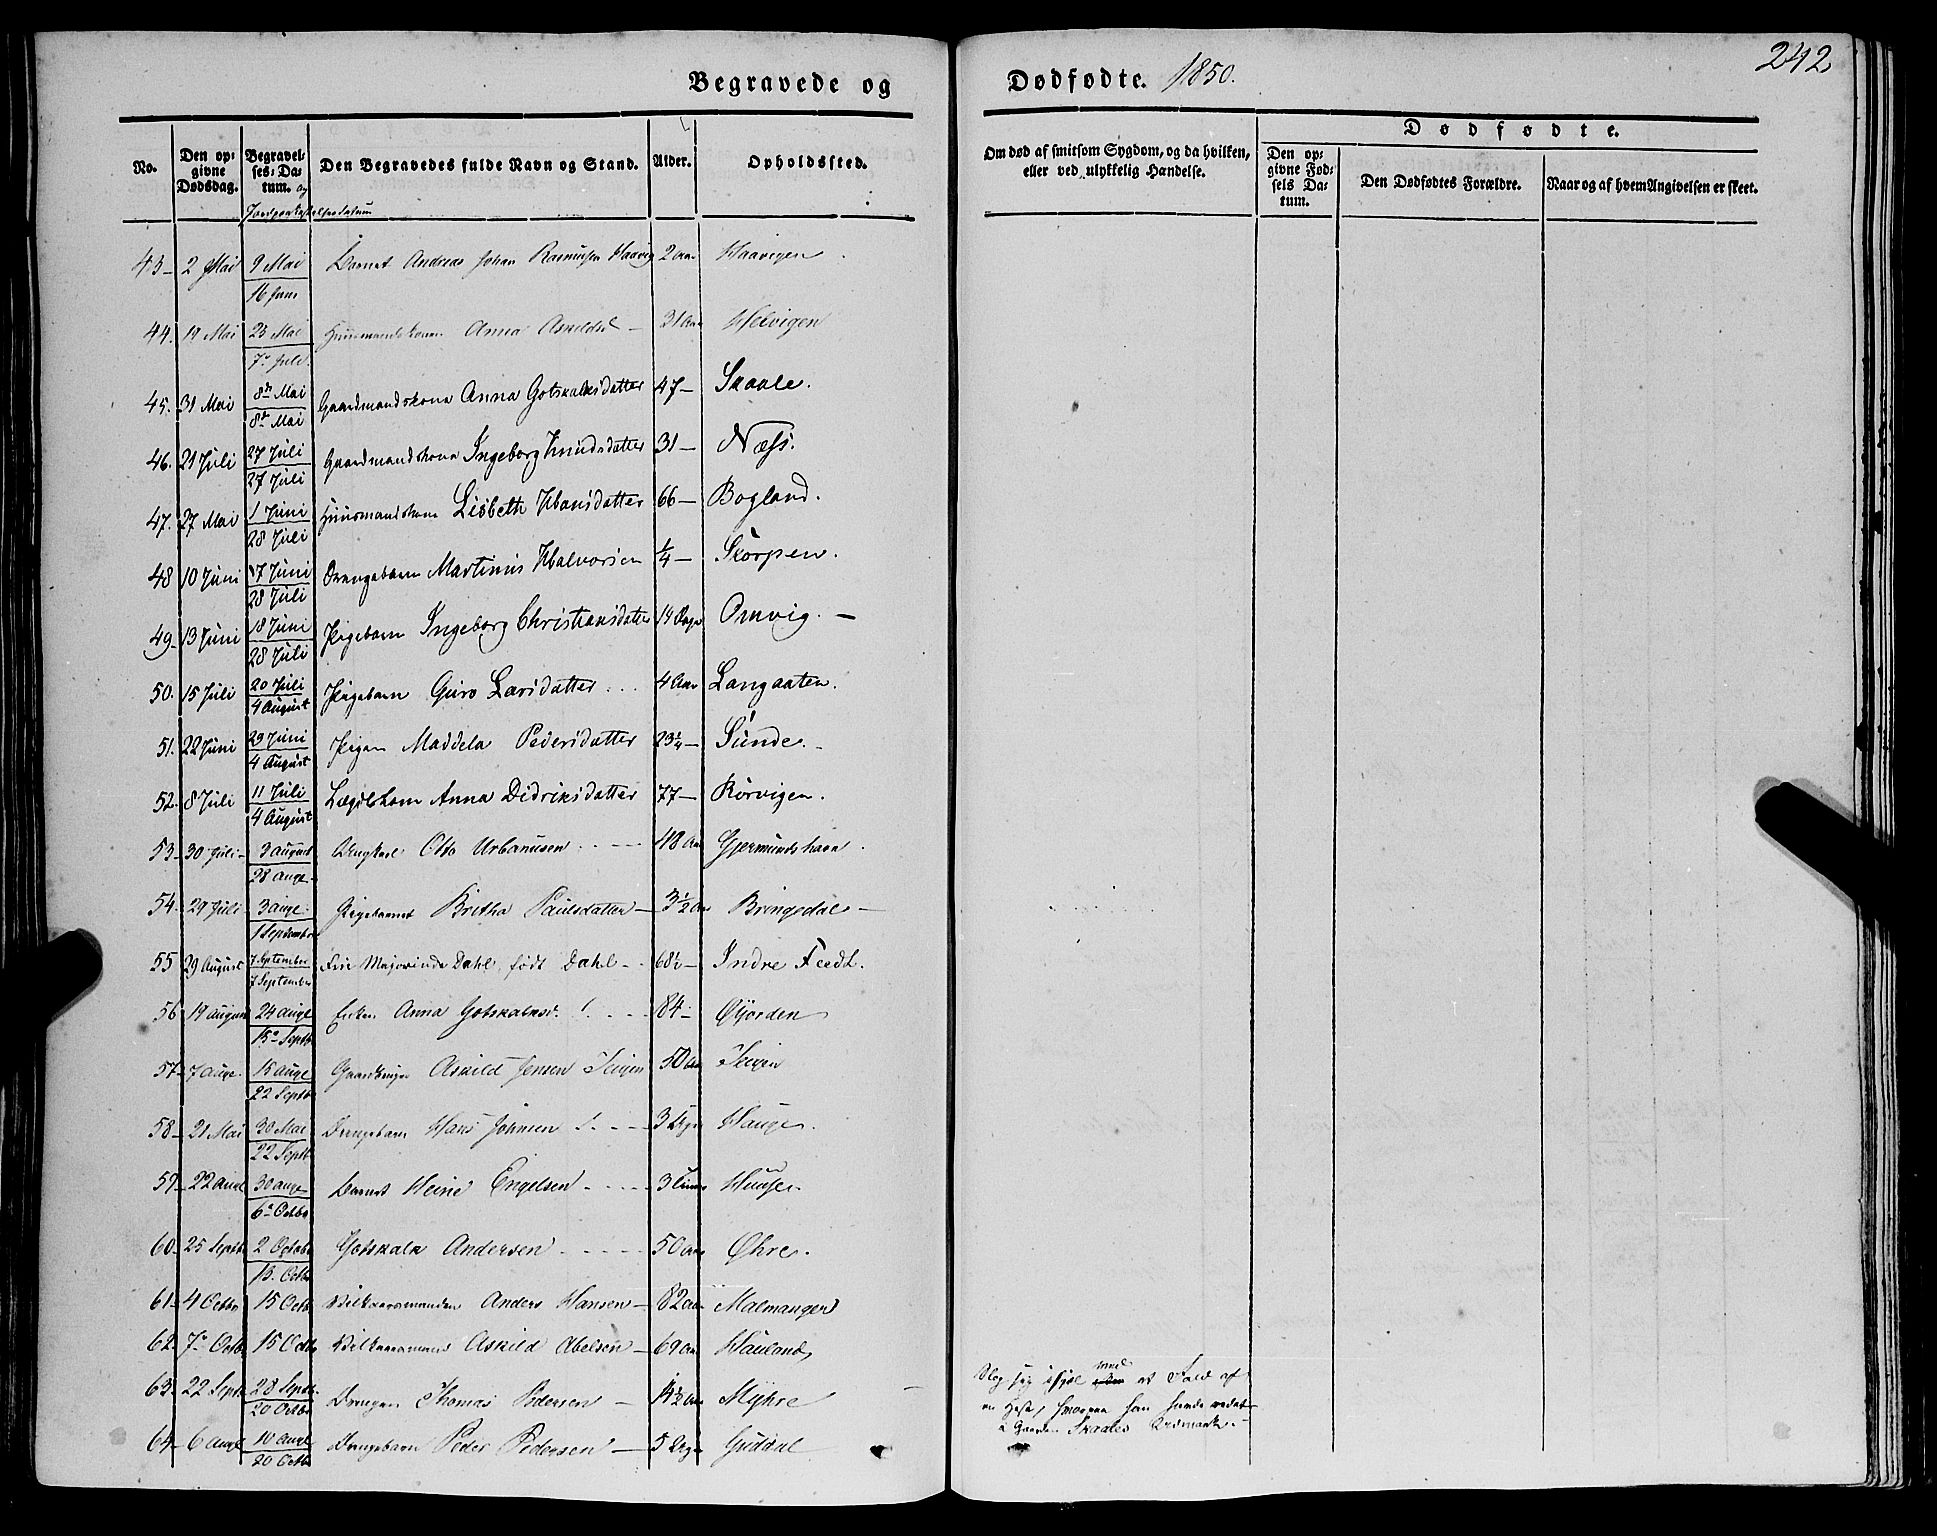 Begravede og Dødfødte. 1850. 242
No. Den opgivne Dødsdag. Begravelses-Datum. og Jordpaakastelsesdatum Den Begravedes fulde Navn og Stand. Alder. Opholdssted. Om død af smitsom Sygdom, og da hvilken, eller ved ulykkelig Hændelse. Dødfødte. Den opgivne Fødsels Datum. Den Dødfødtes Forældre. Naar og af hvem Angivelsen er skeet.
43 2 Mai 9 Mai 16 Juni Barnet Andreas Johan Rasmussen Haavig 2 Aar Haavigen
44. 19 Mai 25 Mai 7 Juli Huusmandskonen Anna Askildsd 31 Aar Helvigen
45. 31 Mai 8de Mai 8de Mai Gaardmandskone Anna Gotskalksdatter 47 Skaale.
46. 21 Juli 27 Juli 27 Juli Gaardmandskone Ingeborg Knudsdatter 31 Næss.
47. 27 Mai 1 Juni 28 Juli Huusmandskone Lisbeth Hansdatter 66 Bogland.
48 10 Juni 17 Juni 28 Juli Drengebarn Martinus Halvorsen 1/4 Skorpen.
49 13 Juni 18 Juni 28 Juli Pigebarn Ingeborg Christiansdatter 14 Dage Omvig.
50. 15 Juli 20 Juli 4 August Pigebarn Guro Larsdatter 4 Aar Langaaten.
51. 22 Juni 29 Juni 4 August Pigen Maddela Pedersdatter 23 1/4 Sunde.
52. 8 Juli 11 Juli 4 August Lægdslem Anna Didriksdatter 77 Rørvigen.
53 30 Juli 3 August 28 Aug Otto Urbanusen 48 Aar Gjermundshavn
54 29 Juli 3 Aug. 1 Septembr Pigebarnet Britha Paulsdatter 3 1/2 Aar Bringedal
55 29 August 7 September 7 September Majorinde Dahl, født Dahl 68 1/2 Indre Feedt.
56 19 August 24 Aug 15 Septb Enken Anna Gotskalksd. 84 Øyjorden
57 7 Aug. 15 Aug 22 Septb Gaardbruger Askild Jensen Teigen 50 Aar Teigen
58 21 Mai 30 Mai 22 Septb Drengebarn Hans Johnsen 3 Dage Hauge.
59 22 Aug 30 Aug 6 Octbr Barnet Heine Engelsen 3 Huuse.
60 25 Septb 2 Octobr 13. Octb Gotskalk Andersen 50 Aar Øhre.
61 4 Octbr 15 Octb Vilkaarsmanden Anders Hansen 82 Aar Malmanger
62 7 Octb. 15 Octb Vilkaarsmand Askild Abelsen 69 Aar Hauland
63 22 Septb 28 Septb. 20 Octbr Drengen Thomas Pedersen 14 1/2 Aar Myhre Slog sig ihjel med et Fald af
en Hest, hvorpaa han havde redet
i Gaarden Skaales Udmark.
64 6 Aug 10 Aug 20 Octb Drengebarn Peder Pedersen 5 Dage Guddal